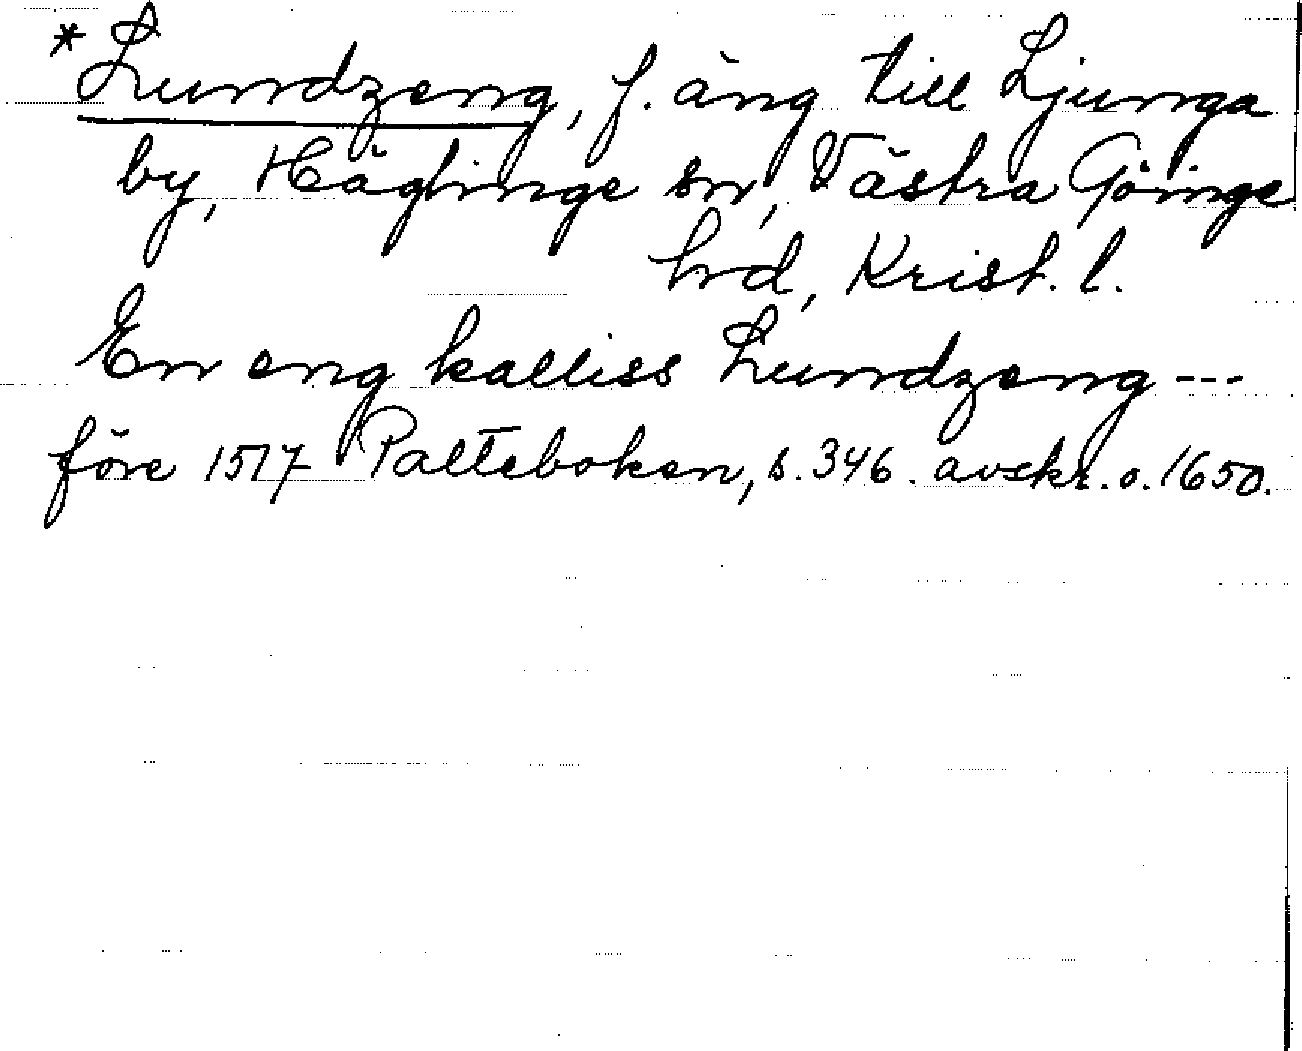 *Lundzeng, f. äng till Ljunga
by, Häglinge sn, Västra Göinge
hrd, Krist. l.
En eng kalliss Lundzeng ---
före 1517 Palteboken, s. 346. avskr. o. 1650.